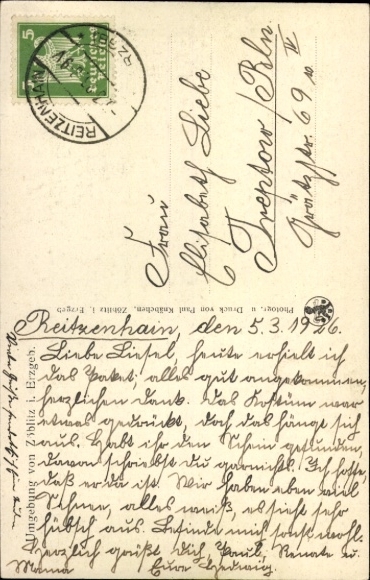 5
Deutsches Reich
REITZENHAIN
Frau
Elisabeth Liebe
Treptow/Bln.
Grätzstr. 69 IV
Photogr. u. Druck von Paul Knäbchen, Zöblitz i. Erzgeb
Umgebung von Zöblitz i. Erzgeb.
Reitzenhain, den 5.3.1926.
Liebe Liesel, heute erhielt ich
das Paket; alles gut angekommen,
herzlichen Dank. Das Kostüm war
etwas gedrückt, doch das hängt sich
aus. Habt ihr den Schein gefunden,
davon schriebst du garnichts. Ich hoffe,
daß er da ist. Wir haben eben viel
Schnee, alles weiß, es sieht sehr
hübsch aus. Befinde mich sonst wohl.
Herzlich grüßt Dich, Paul, Renate u.
Mama Eure Hedwig.